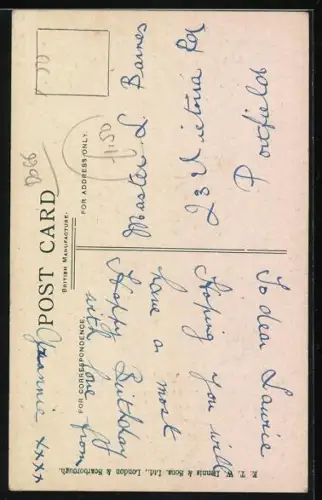 POST CARD
BRITISH MANUFACTURE.
FOR CORRESPONDENCE.
FOR ADDRESS ONLY.
To dear Laurie
Hoping you will
have a most
Happy Birthday
with love from
xxxx
Master L. Barnes
23 Victoria Rd
Portfields
1.50
E. T. W. Dennis & Sons, Ltd., London & Scarborough.